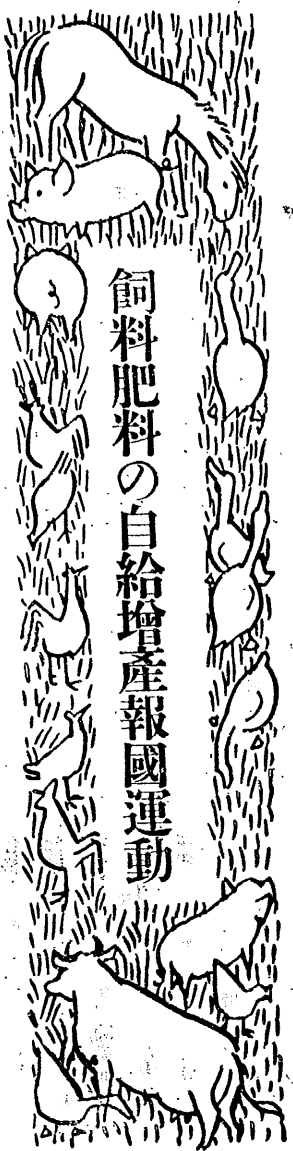 飼料肥料の自給增產報國運動